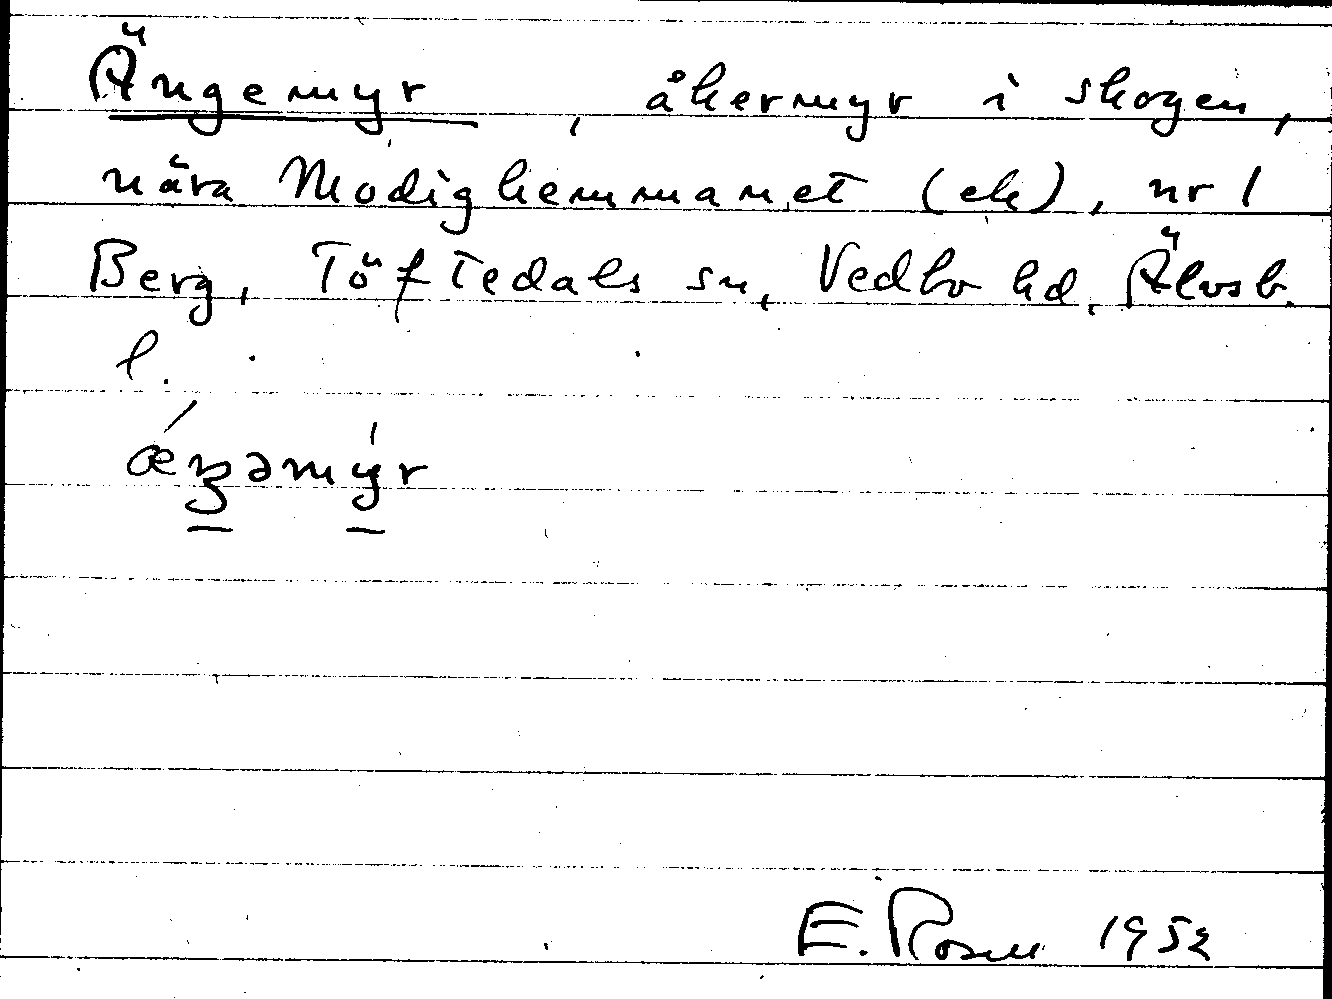 Ängemyr, åkermyr i skogen,
nära Modighemmanet (ek), nr 1
Berg, Töftedals sn, Vedbo hd, Älvsb.
l.
E. Rosen 1952